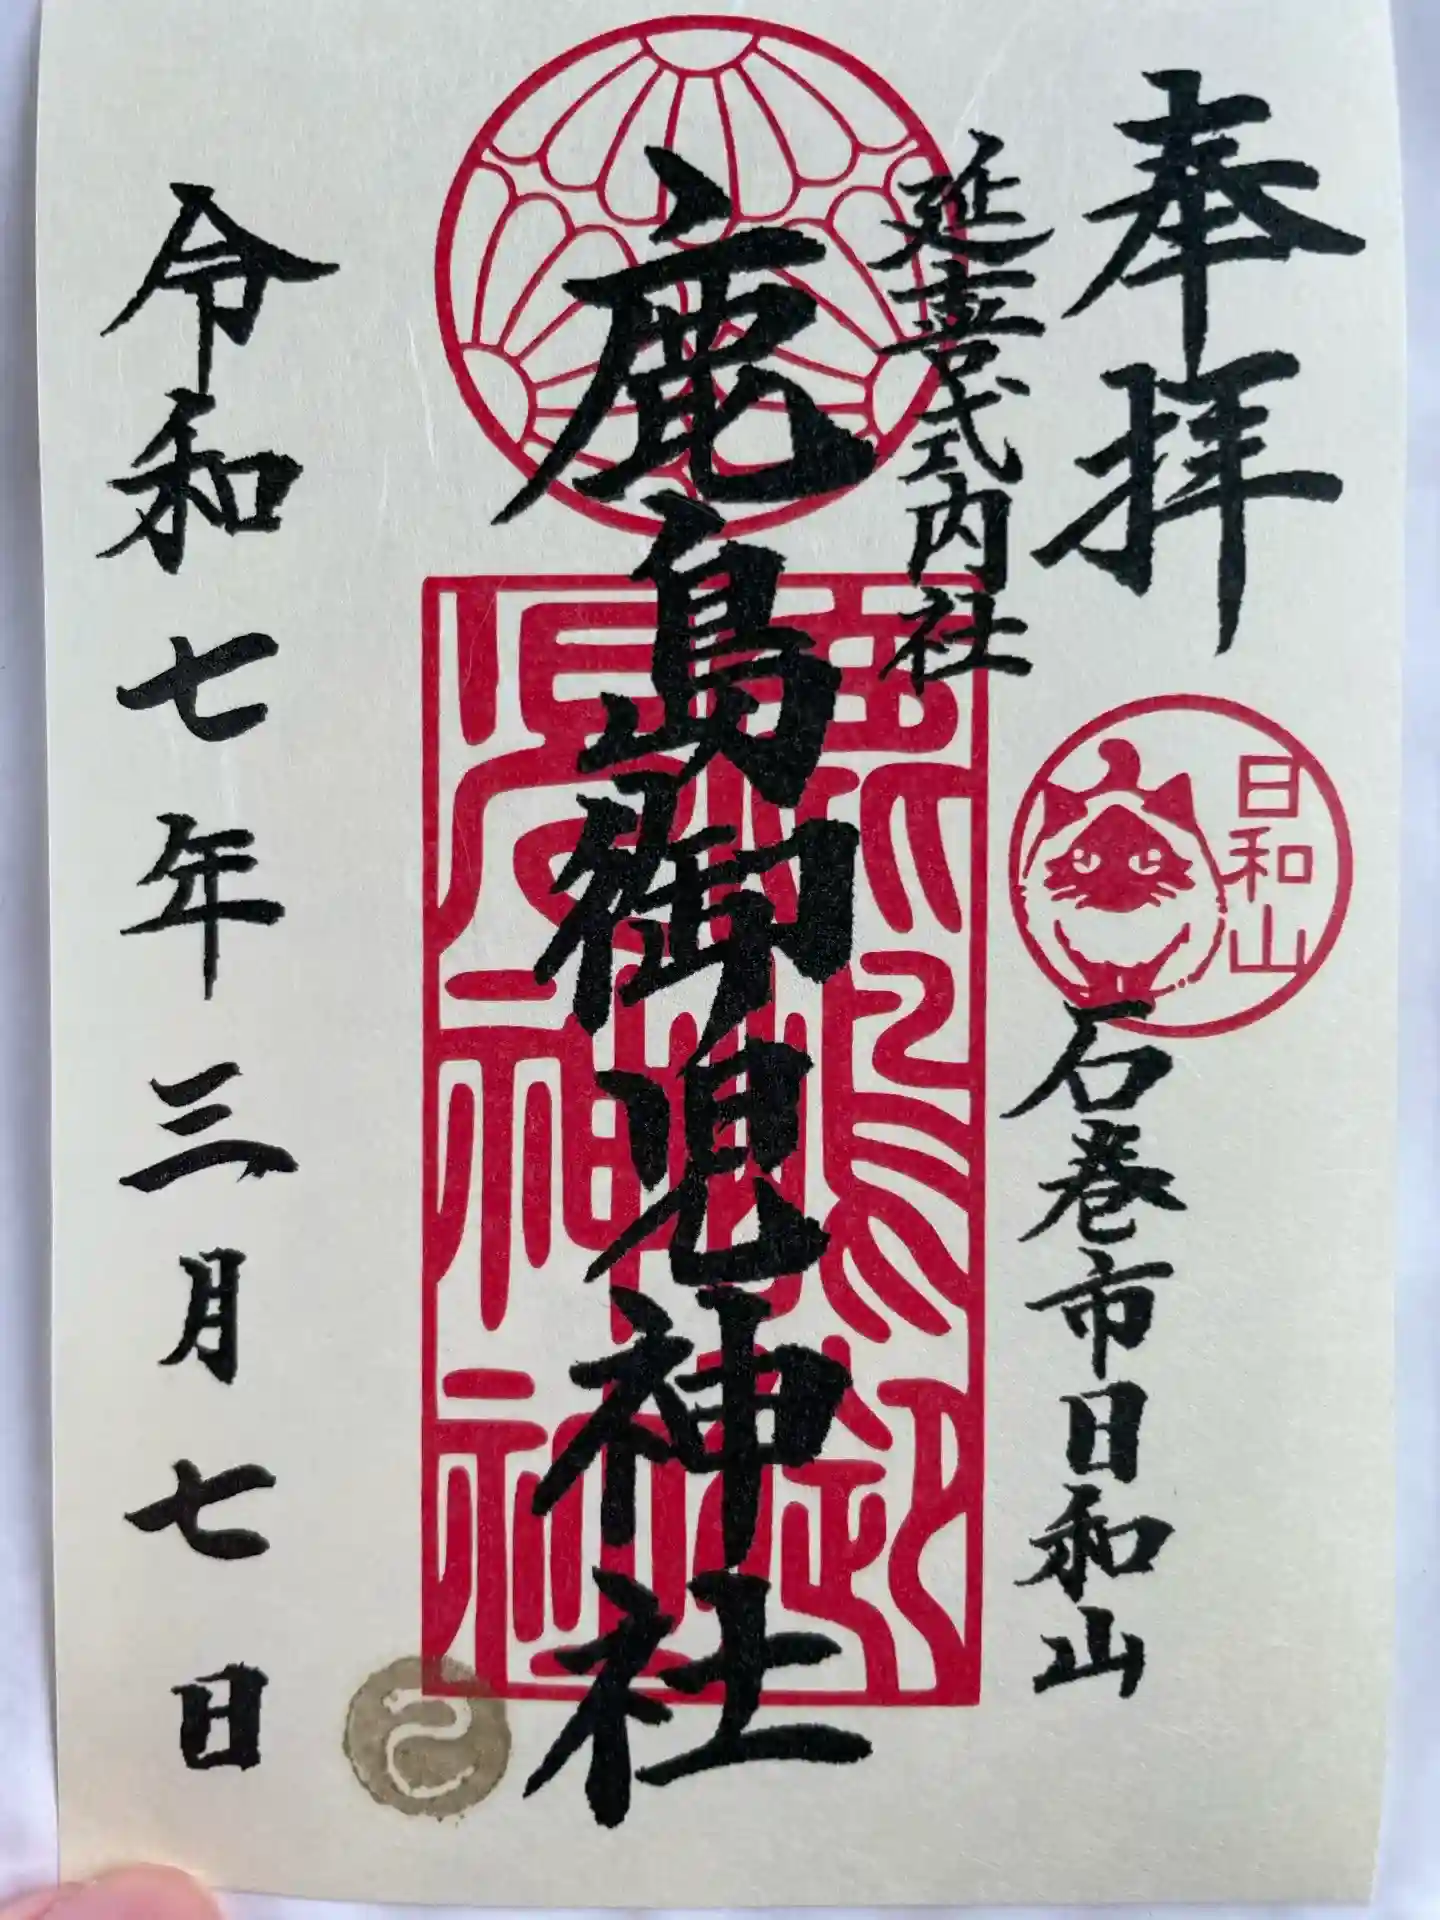 奉拝
日和山
石巻市日和山
延喜式内社
鹿島御児神社
令和七年三月七日